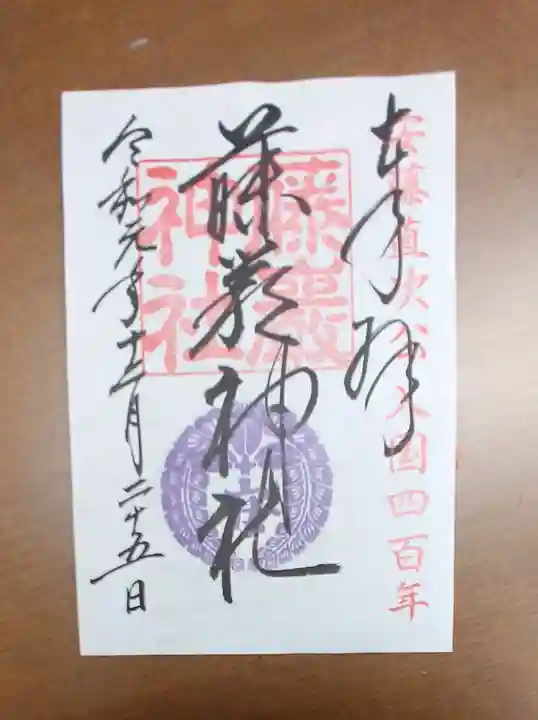 安藤直次公入国四百年
奉拝
藤巖神社
藤巖神社
令和元年十二月二十五日